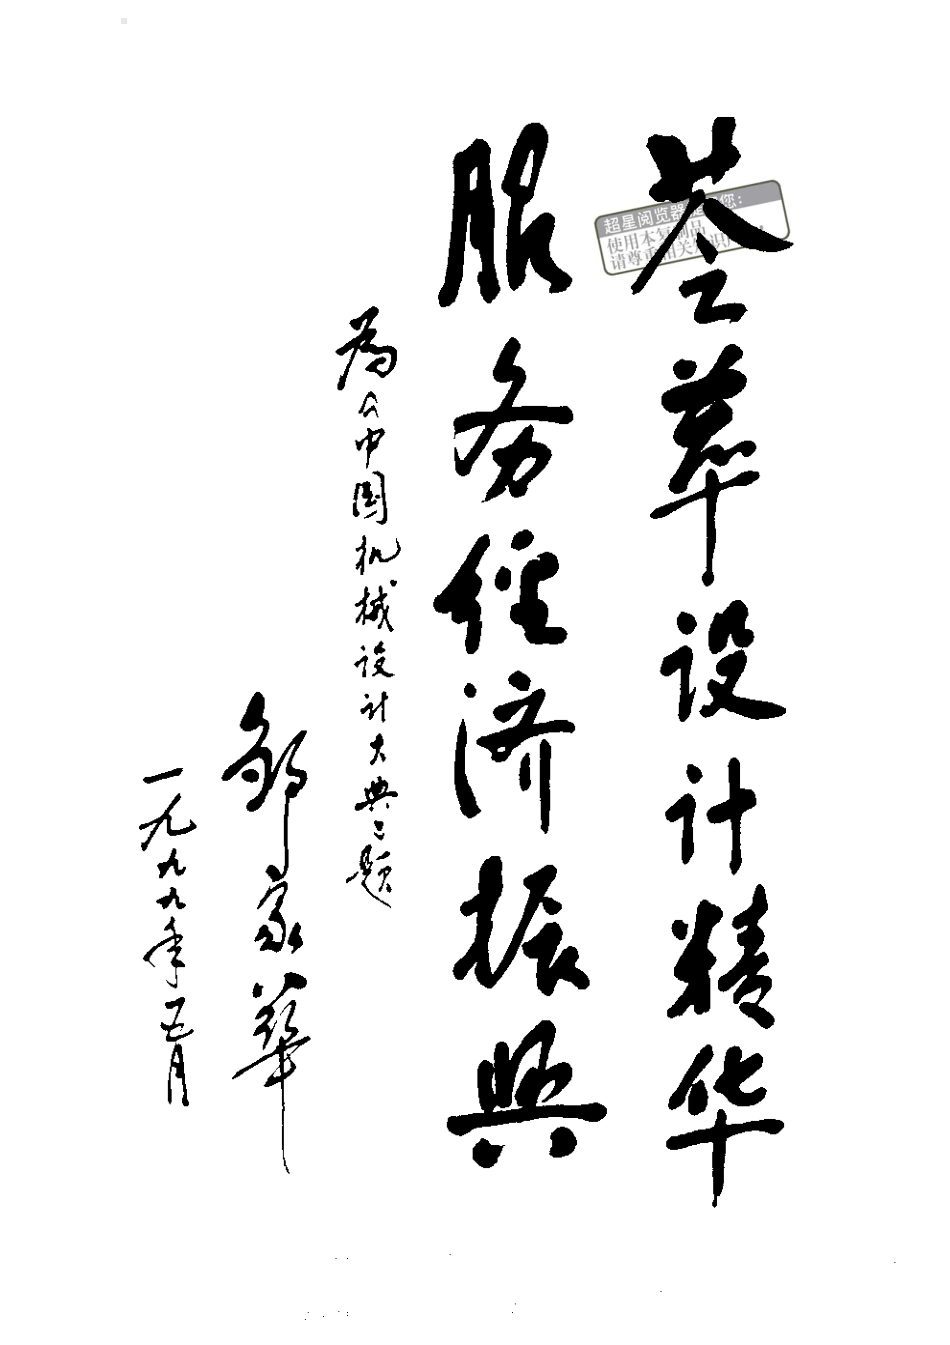 荟萃设计精华
服务经济振興
為《中国机械设计大典》题
邹家華
一九九九年五月
超星阅览器提醒您:
使用本复制品
请尊重相关知识产权!